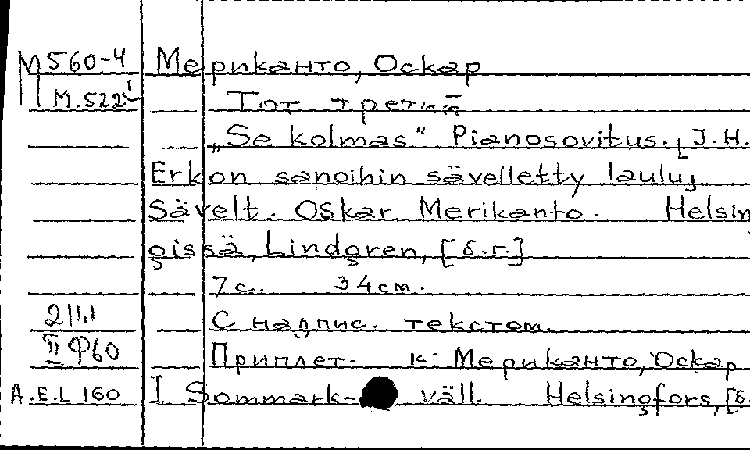 М 560-4 Мериканто, Оскар
М.522 Тот третий
„Se kolmas“ Pianosovitus. [J.H.
Erkon sanoihin sävelletty laulu]
Sävelt. Oskar Merikanto. Helsin
gissä, Lindgren, [б.г.]
7 с. 34 см.
С надпис. текстом.
II Ф60 Приплет. к: Мериканто, Оскар
A.E.L 160 I Sommark- väll. Helsingfors, [б.